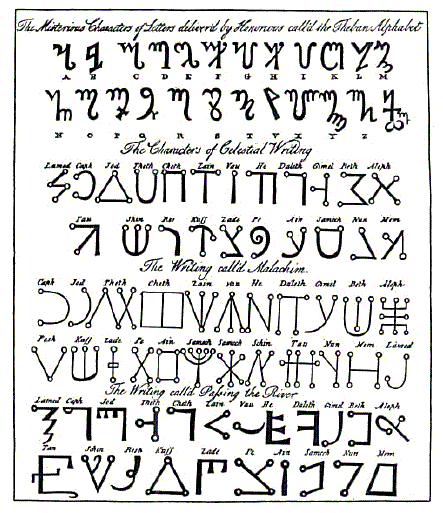 The Misterious Characters of Letters deliver'd by Honorius call'd the Theban Alphabet
A B C D E F G H I K L M
N O P Q R S T V X Y Z
The Characters of Celestial Writing
Lamed Caph Jod Theth Cheth Zain Vau He Daleth Gimel Beth Aleph
Tau Shin Res Kuff Zade Pe Ain Samech Nun Mem
The Writing call'd Malachim.
Caph Jod Theth Cheth Zain Vau He Daleth Gimel Beth Aleph
Resh Kuff Zade Pe Ain Samech Samech Schin Tau Nun Mem Lamed
The Writing call'd Passing the River
Lamed Caph Jod Theth Cheth Zain Vau He Daleth Gimel Beth Aleph
Tau Schin Resh Kuff Zade Pe Ain Samech Nun Mem